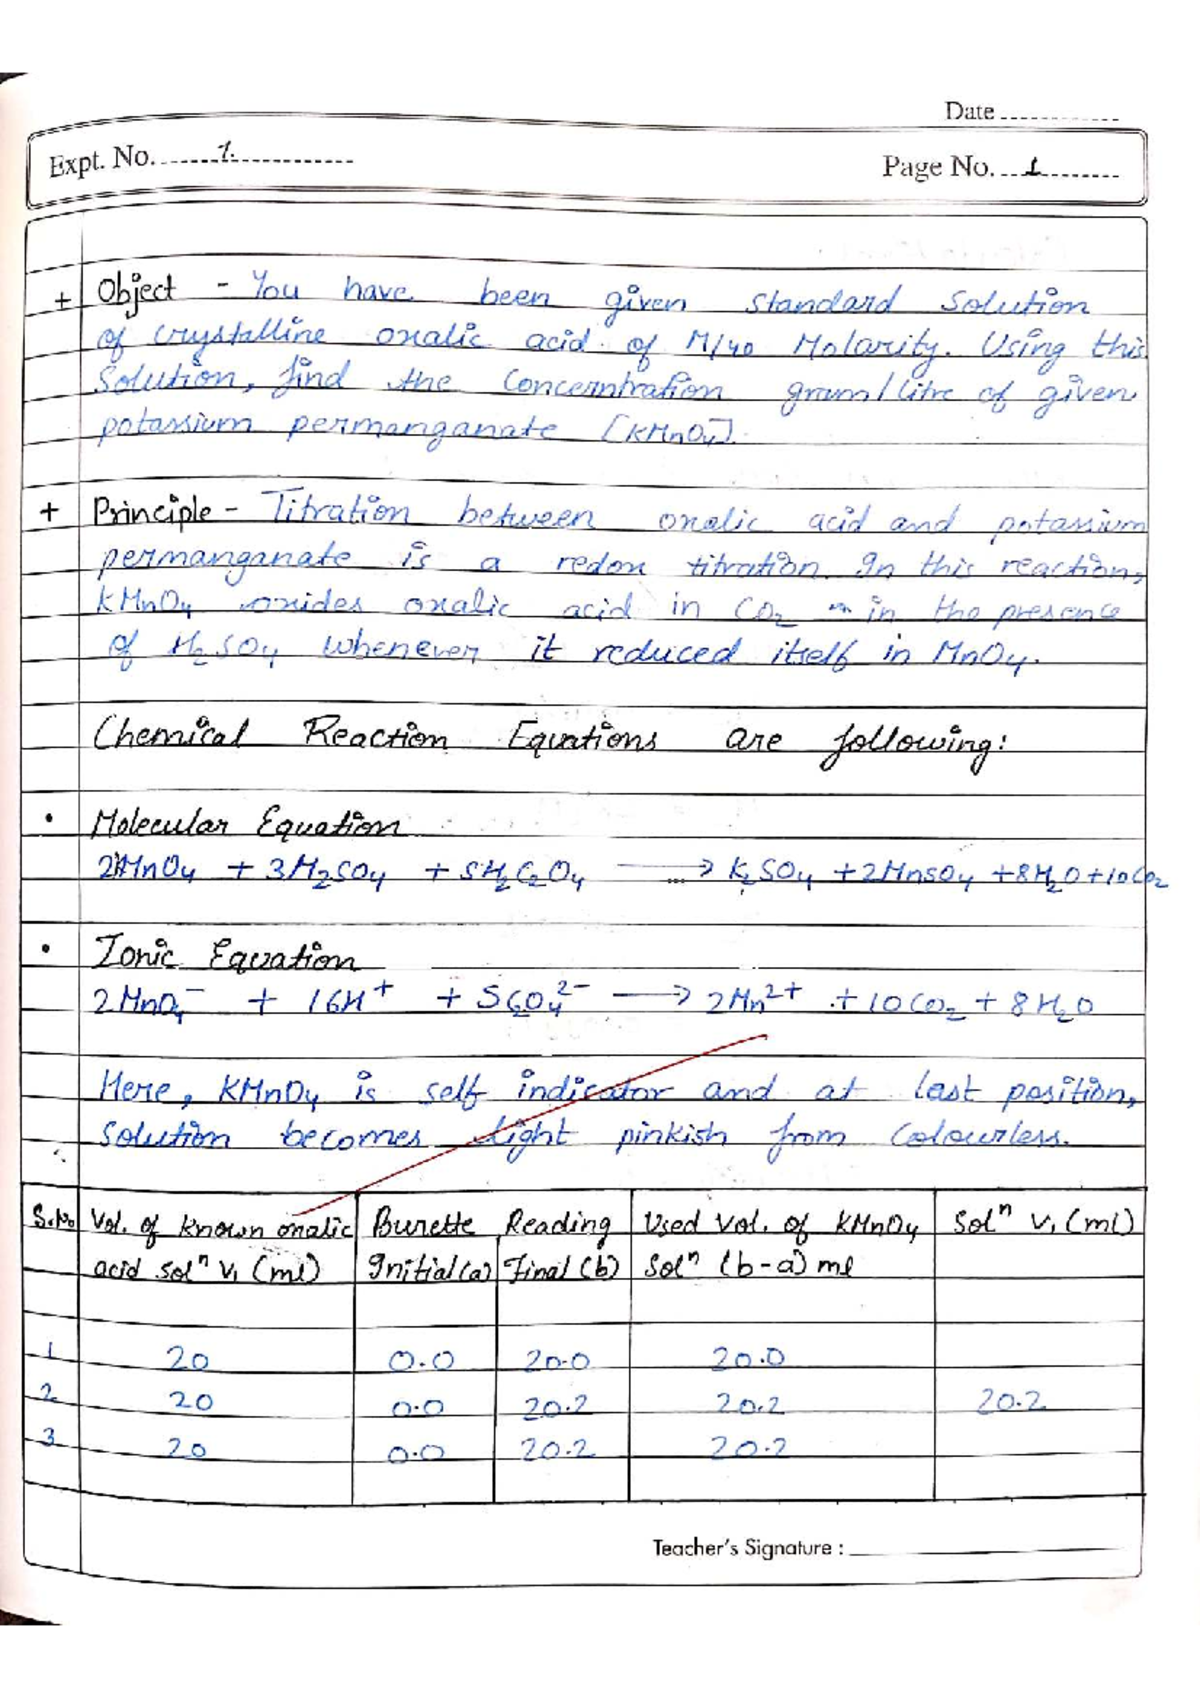 Date
Expt. No. 1.
Page No. 1
+ Object - You have been given standard solution
of crystalline oxalic acid of M/40 Molarity. Using this
solution, find the concerntration gram/litre of given
potassium permanganate [KMnO4].
+ Principle - Titration between oxalic acid and potassium
permanganate is a redox titration. In this reaction,
KMnO4 oxides oxalic acid in CO2 in the presence
of H2SO4 whenever it reduced itself in MnO4.
Chemical Reaction Equations are following:
• Molecular Equation
2KMnO4 + 3H2SO4 + 5H2C2O4 → K2SO4 + 2MnSO4 + 8H2O + 10CO2
• Ionic Equation
2MnO4⁻ + 16H⁺ + 5C2O4²⁻ → 2Mn²⁺ + 10CO2 + 8H2O
Here, KMnO4 is self indicator and at last position,
solution becomes light pinkish from colourless.
S.No Vol. of known oxalic Burette Reading Used Vol. of KMnO4 Solⁿ V1 (ml)
acid solⁿ V1 (ml) Initial (a) Final (b) Solⁿ (b-a) ml
1 20 0.0 20.0 20.0
2 20 0.0 20.2 20.2 20.2
3 20 0.0 20.2 20.2
Teacher's Signature :